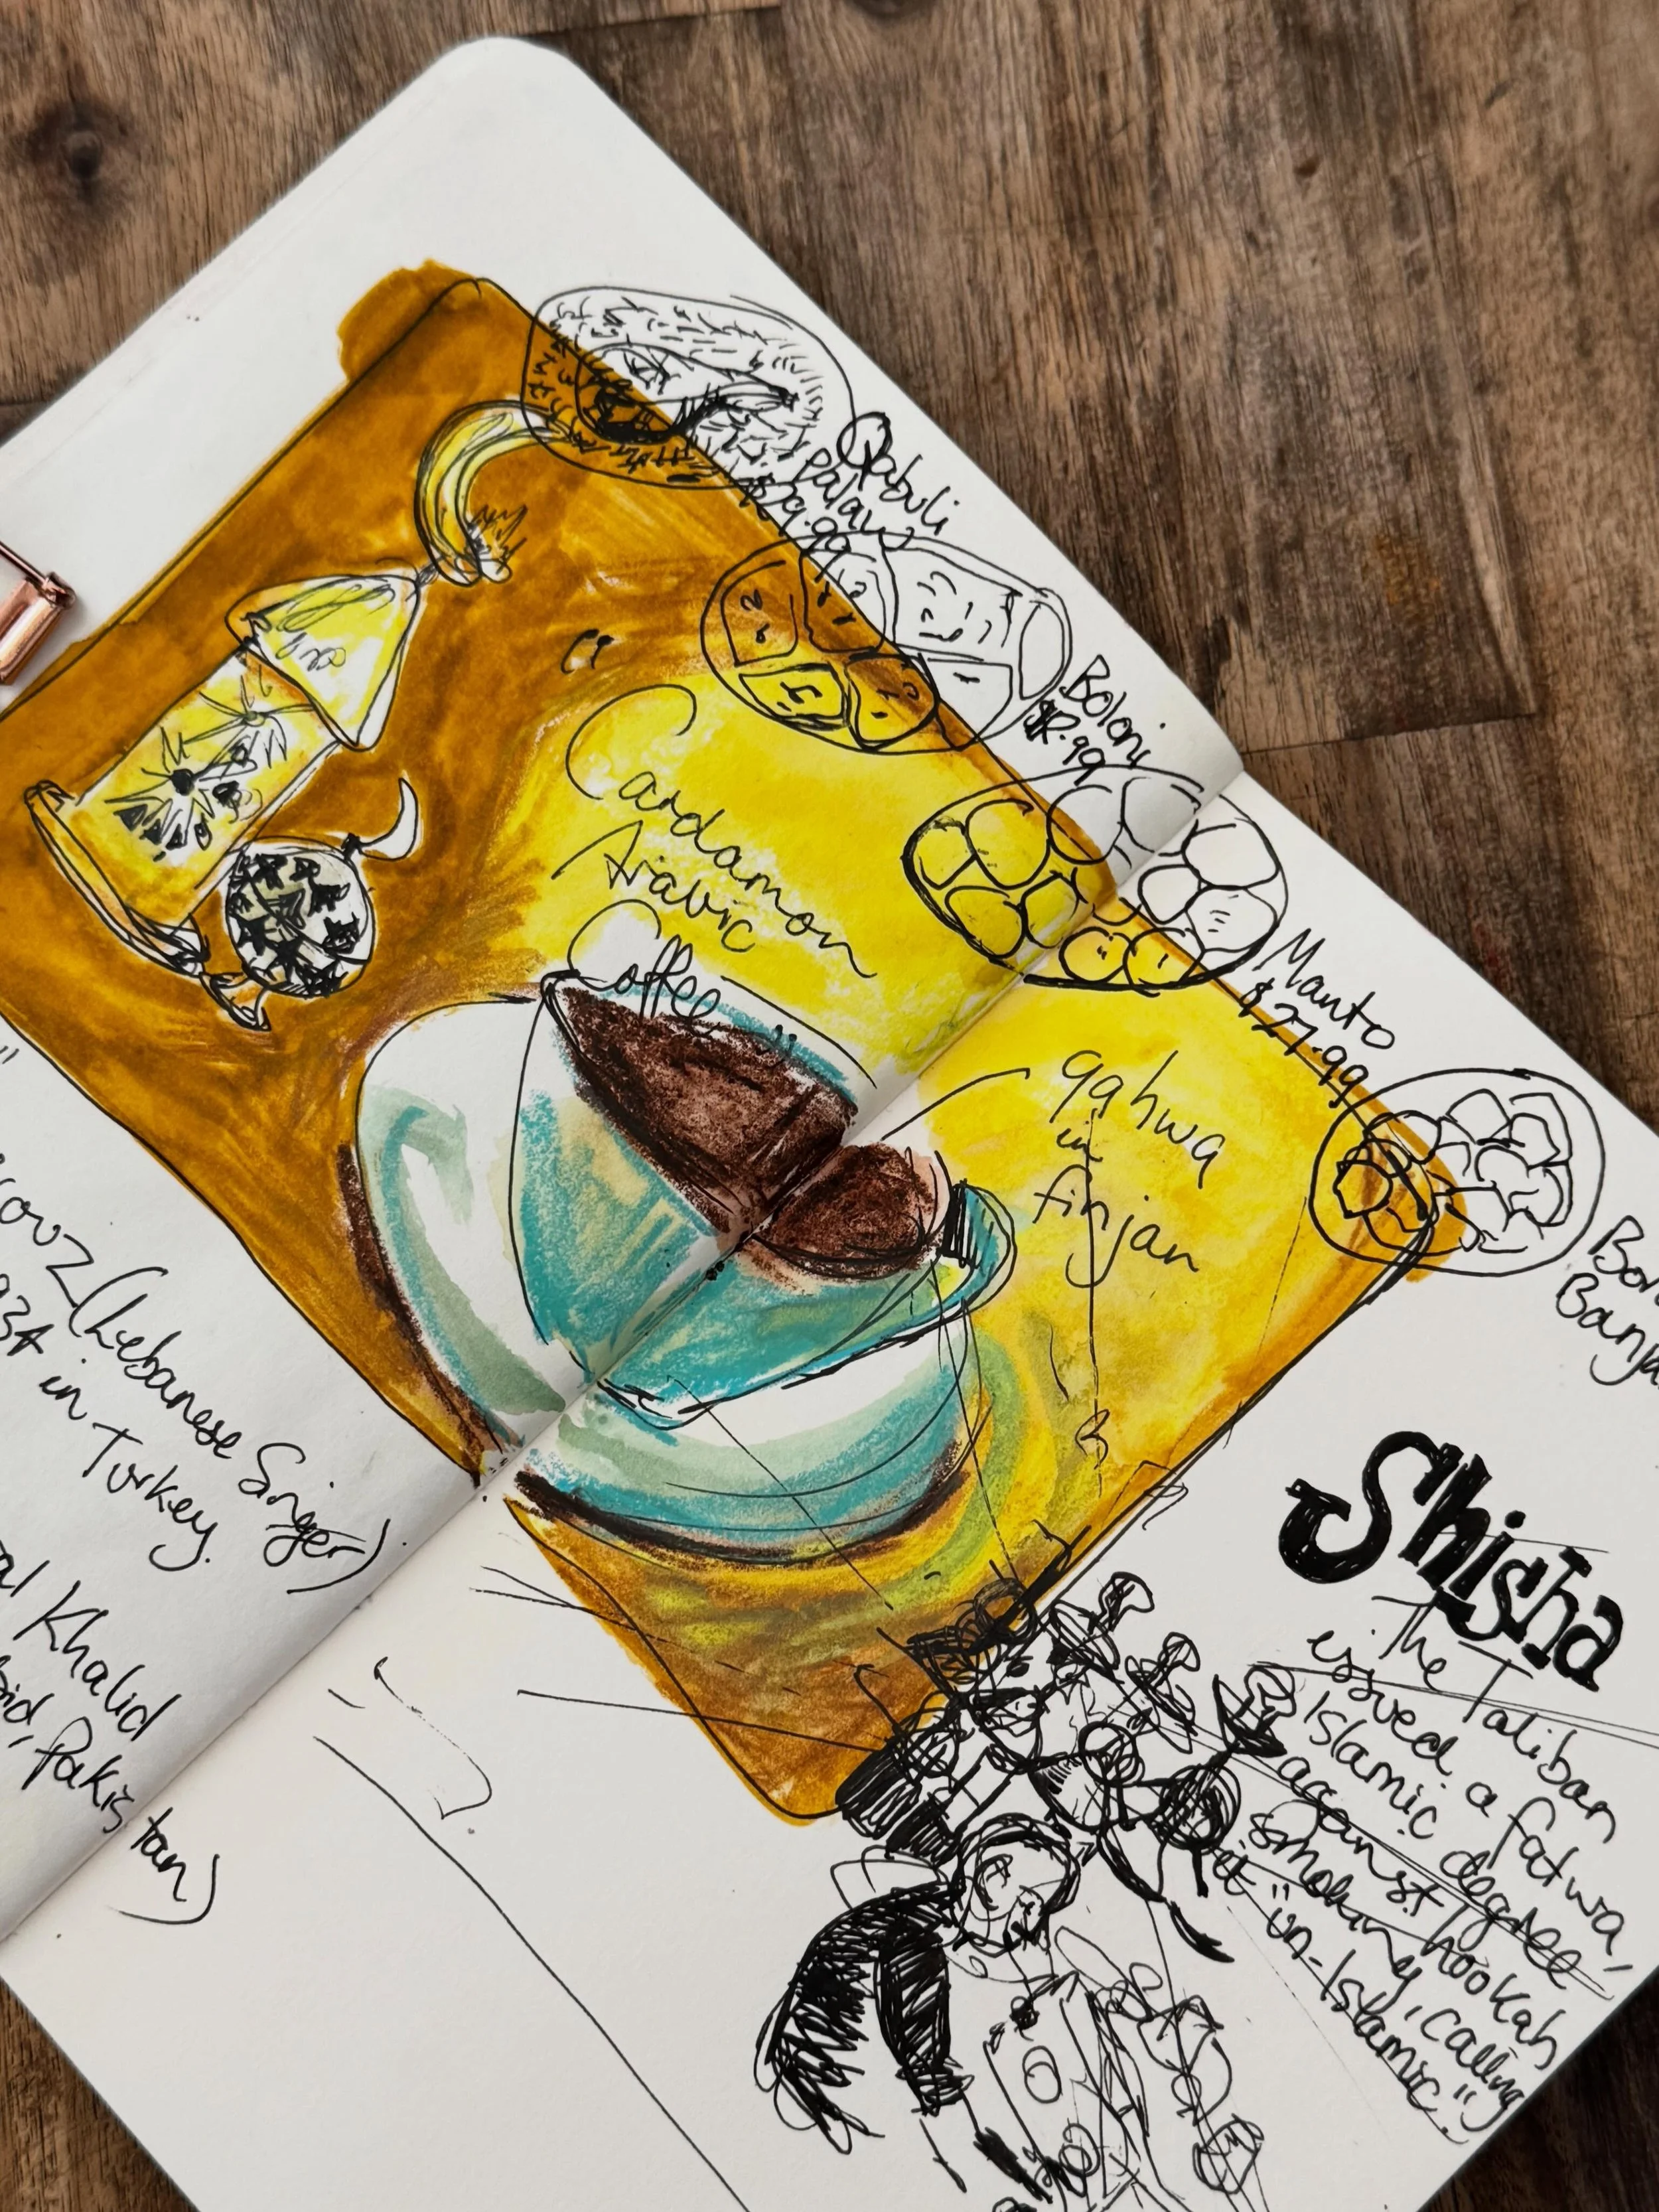 Qabuli
Palaw
Bolani
Manto
$27.99
Banja
Cardamon
Arabic
Coffee
qahwa
in
finjan
(Lebanese Singer)
in Turkey.
Khalid
Pakistan)
Shisha
The Taliban
issued a fatwa,
Islamic degree
against
smoking hookah
calling
it "un-Islamic."